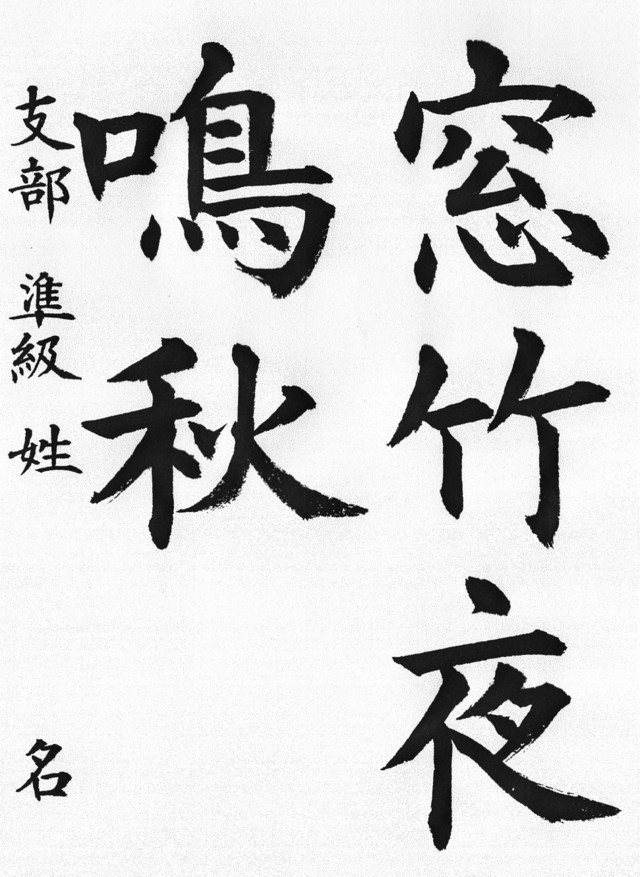 窓竹夜
鳴秋
支部 準級 姓 名